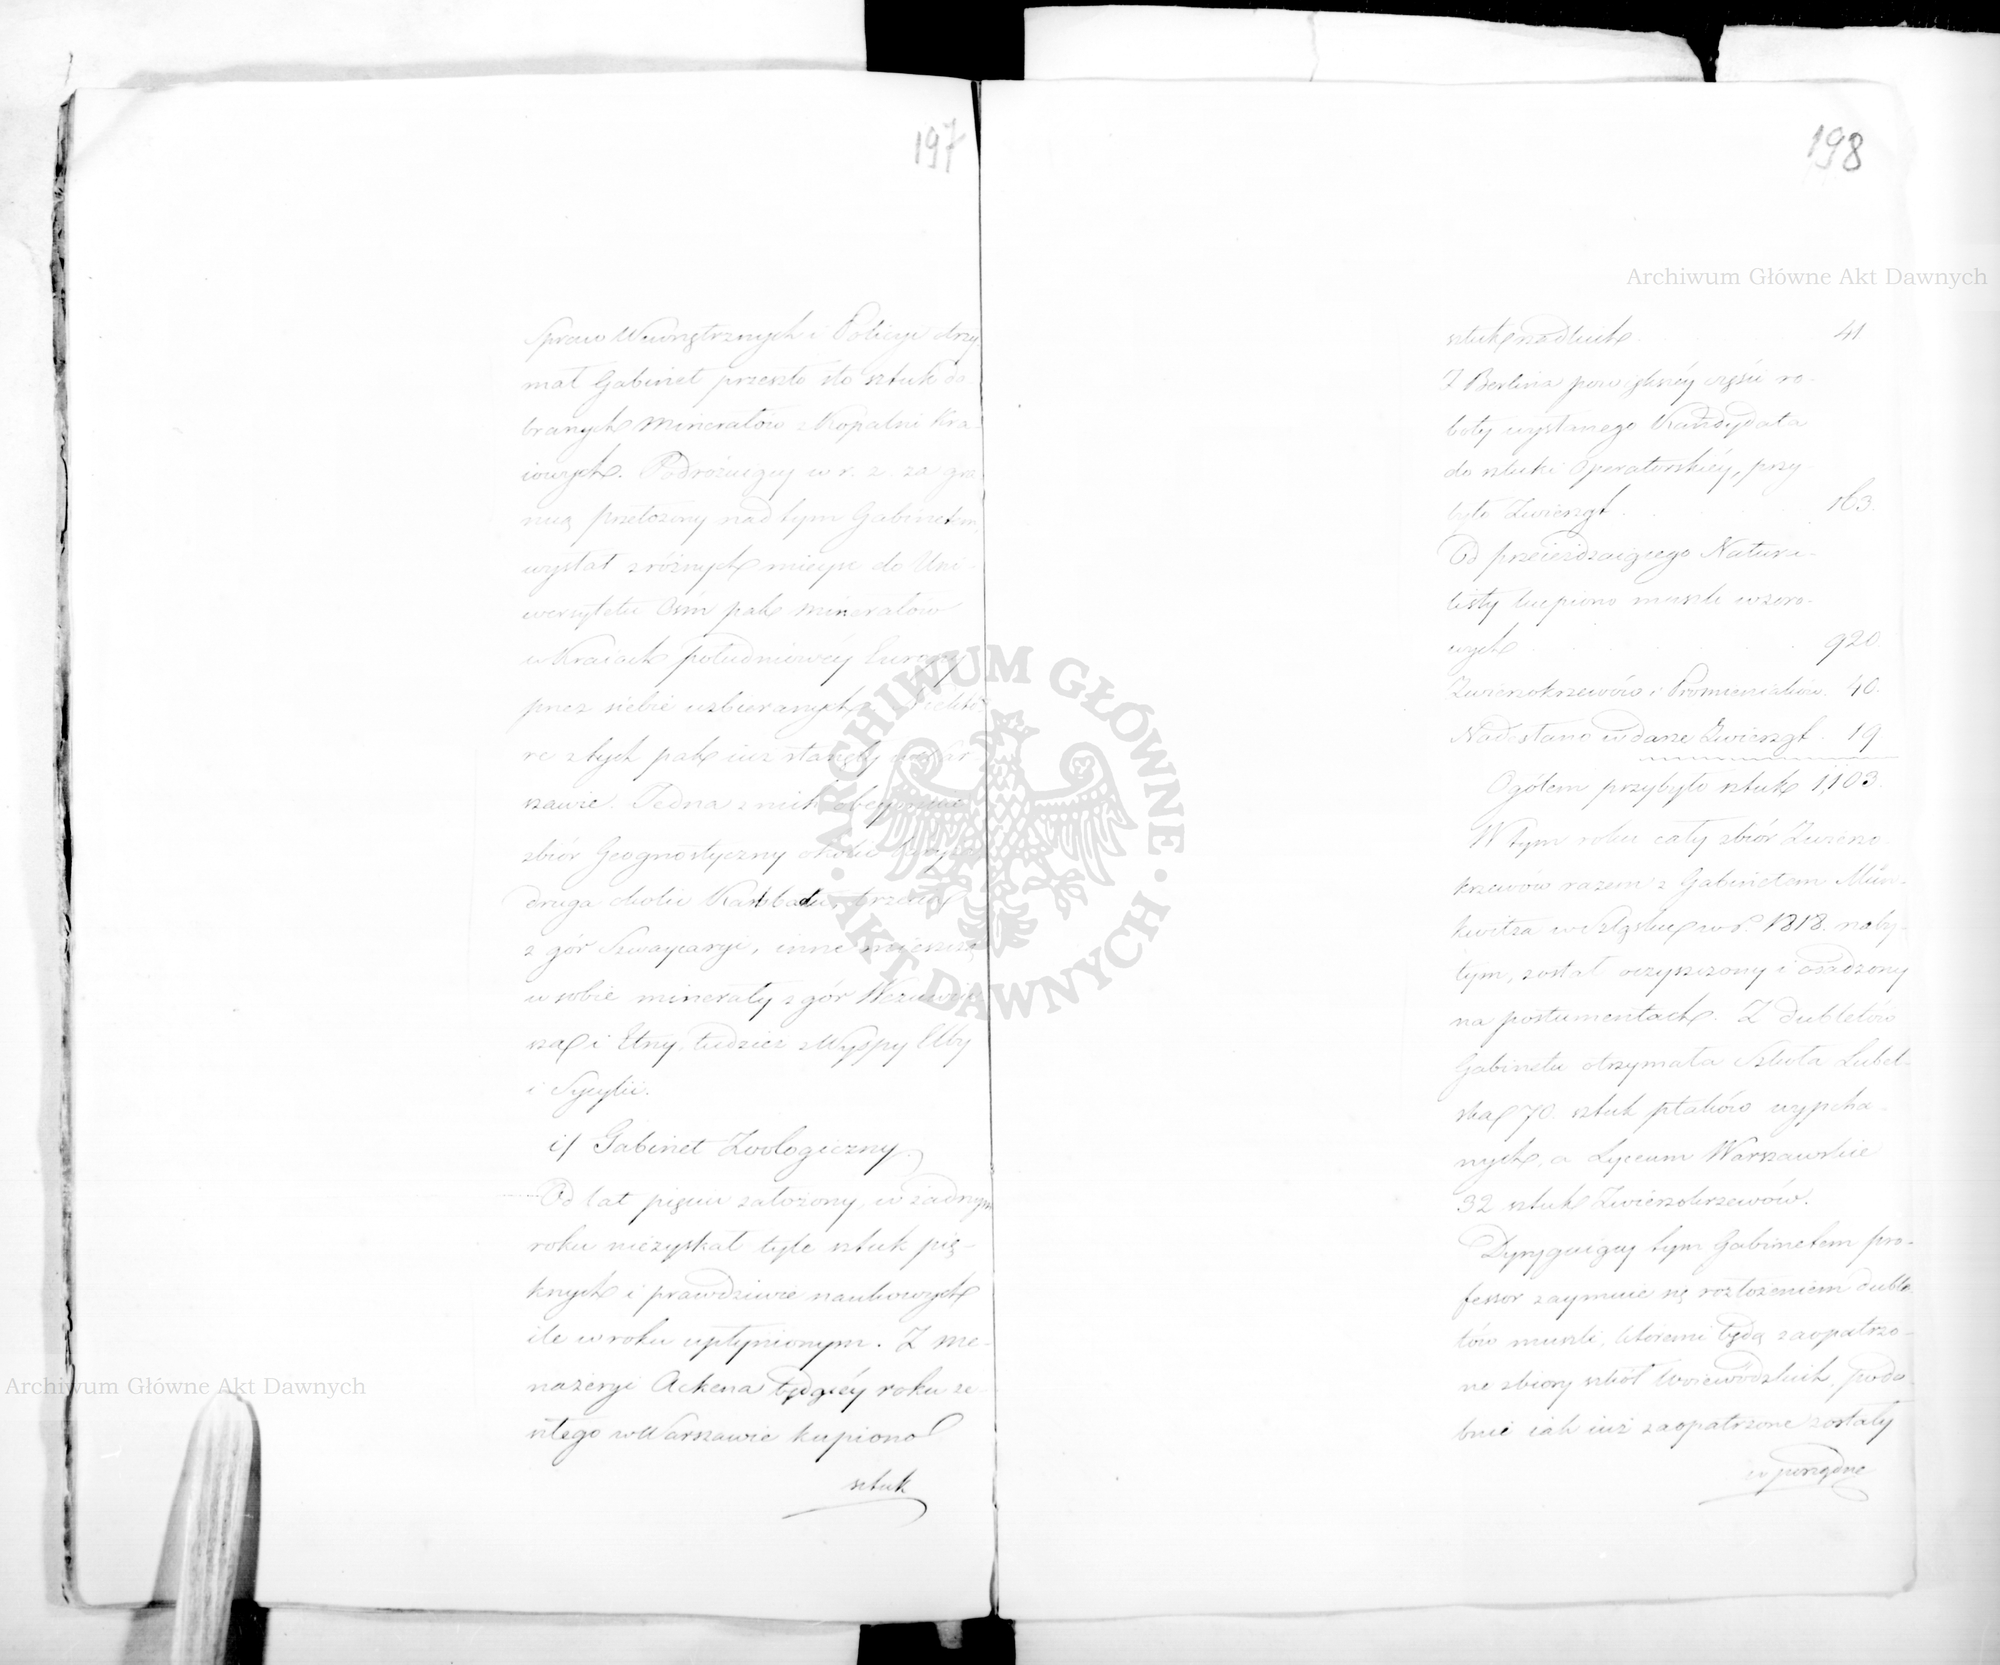 197
Spraw Wewnętrznych i Policyi otrzy-
mał Gabinet przeszło sto sztuk do-
branych Minerałów z Kopalni Kra-
iowych. Podróżuiący w r. z. za gra-
nicą przełożony nad tym Gabinetem,
wysłał z różnych mieysc do Uni-
wersytetu Ośm pak minerałów
w Kraiach południowéy Europy
przez siebie uzbieranych. Niektó-
re z tych pak iuż stanęły w War-
szawie. Jedna z nich obeymuie
zbiór Geognostyczny okolic
druga okolic Karlsbadu, trzecia
z gór Szwaycaryi, inne mieszczą
w sobie minerały z gór Wezuwiu-
sza i Etny, tudzież z Wyspy Elby
i Sycylii.
i/ Gabinet Zoologiczny.
Od lat pięciu założony, w żadnym
roku niezyskał tyle sztuk pię-
knych i prawdziwie naukowych
ile w roku upłynionym. Z me-
nażeryi Ackena będącéy roku ze-
szłego w Warszawie kupiono
sztuk
198
sztuk rzadkich 41
Z Berlina po większéy części ro-
boty wysłanego Kandydata
do sztuki Operatorskiéy, przy-
było Zwierząt 163.
Od przeieżdzaiącego Natura-
listy kupiono muszli wzoro-
wych 920
Zwierzokrzewów i Promieniaków. 40.
Nadesłano w darze Zwierząt. 19
Ogółem przybyło sztuk 1,103.
W tym roku cały zbiór Zwierzo-
krzewów razem z Gabinetem Min-
kwitza w Szląsku w r. 1818. naby-
tym, został oczyszczony i osadzony
na postumentach. Z dubletów
Gabinetu otrzymała Szkoła Lubel-
ska 70. sztuk ptaków wypcha-
nych, a Lyceum Warszawskie
32 sztuk Zwierzokrzewów.
Dyryguiący tym Gabinetem pro-
fessor zaymuie się rozłożeniem duble-
tów muszli, któremi będą zaopatrzo-
ne zbiory szkół Woiewódzkich, podo-
bnie iak iuż zaopatrzone zostały
w porządne
Archiwum Główne Akt Dawnych
ARCHIWUM GŁÓWNE
AKT DAWNYCH
Archiwum Główne Akt Dawnych